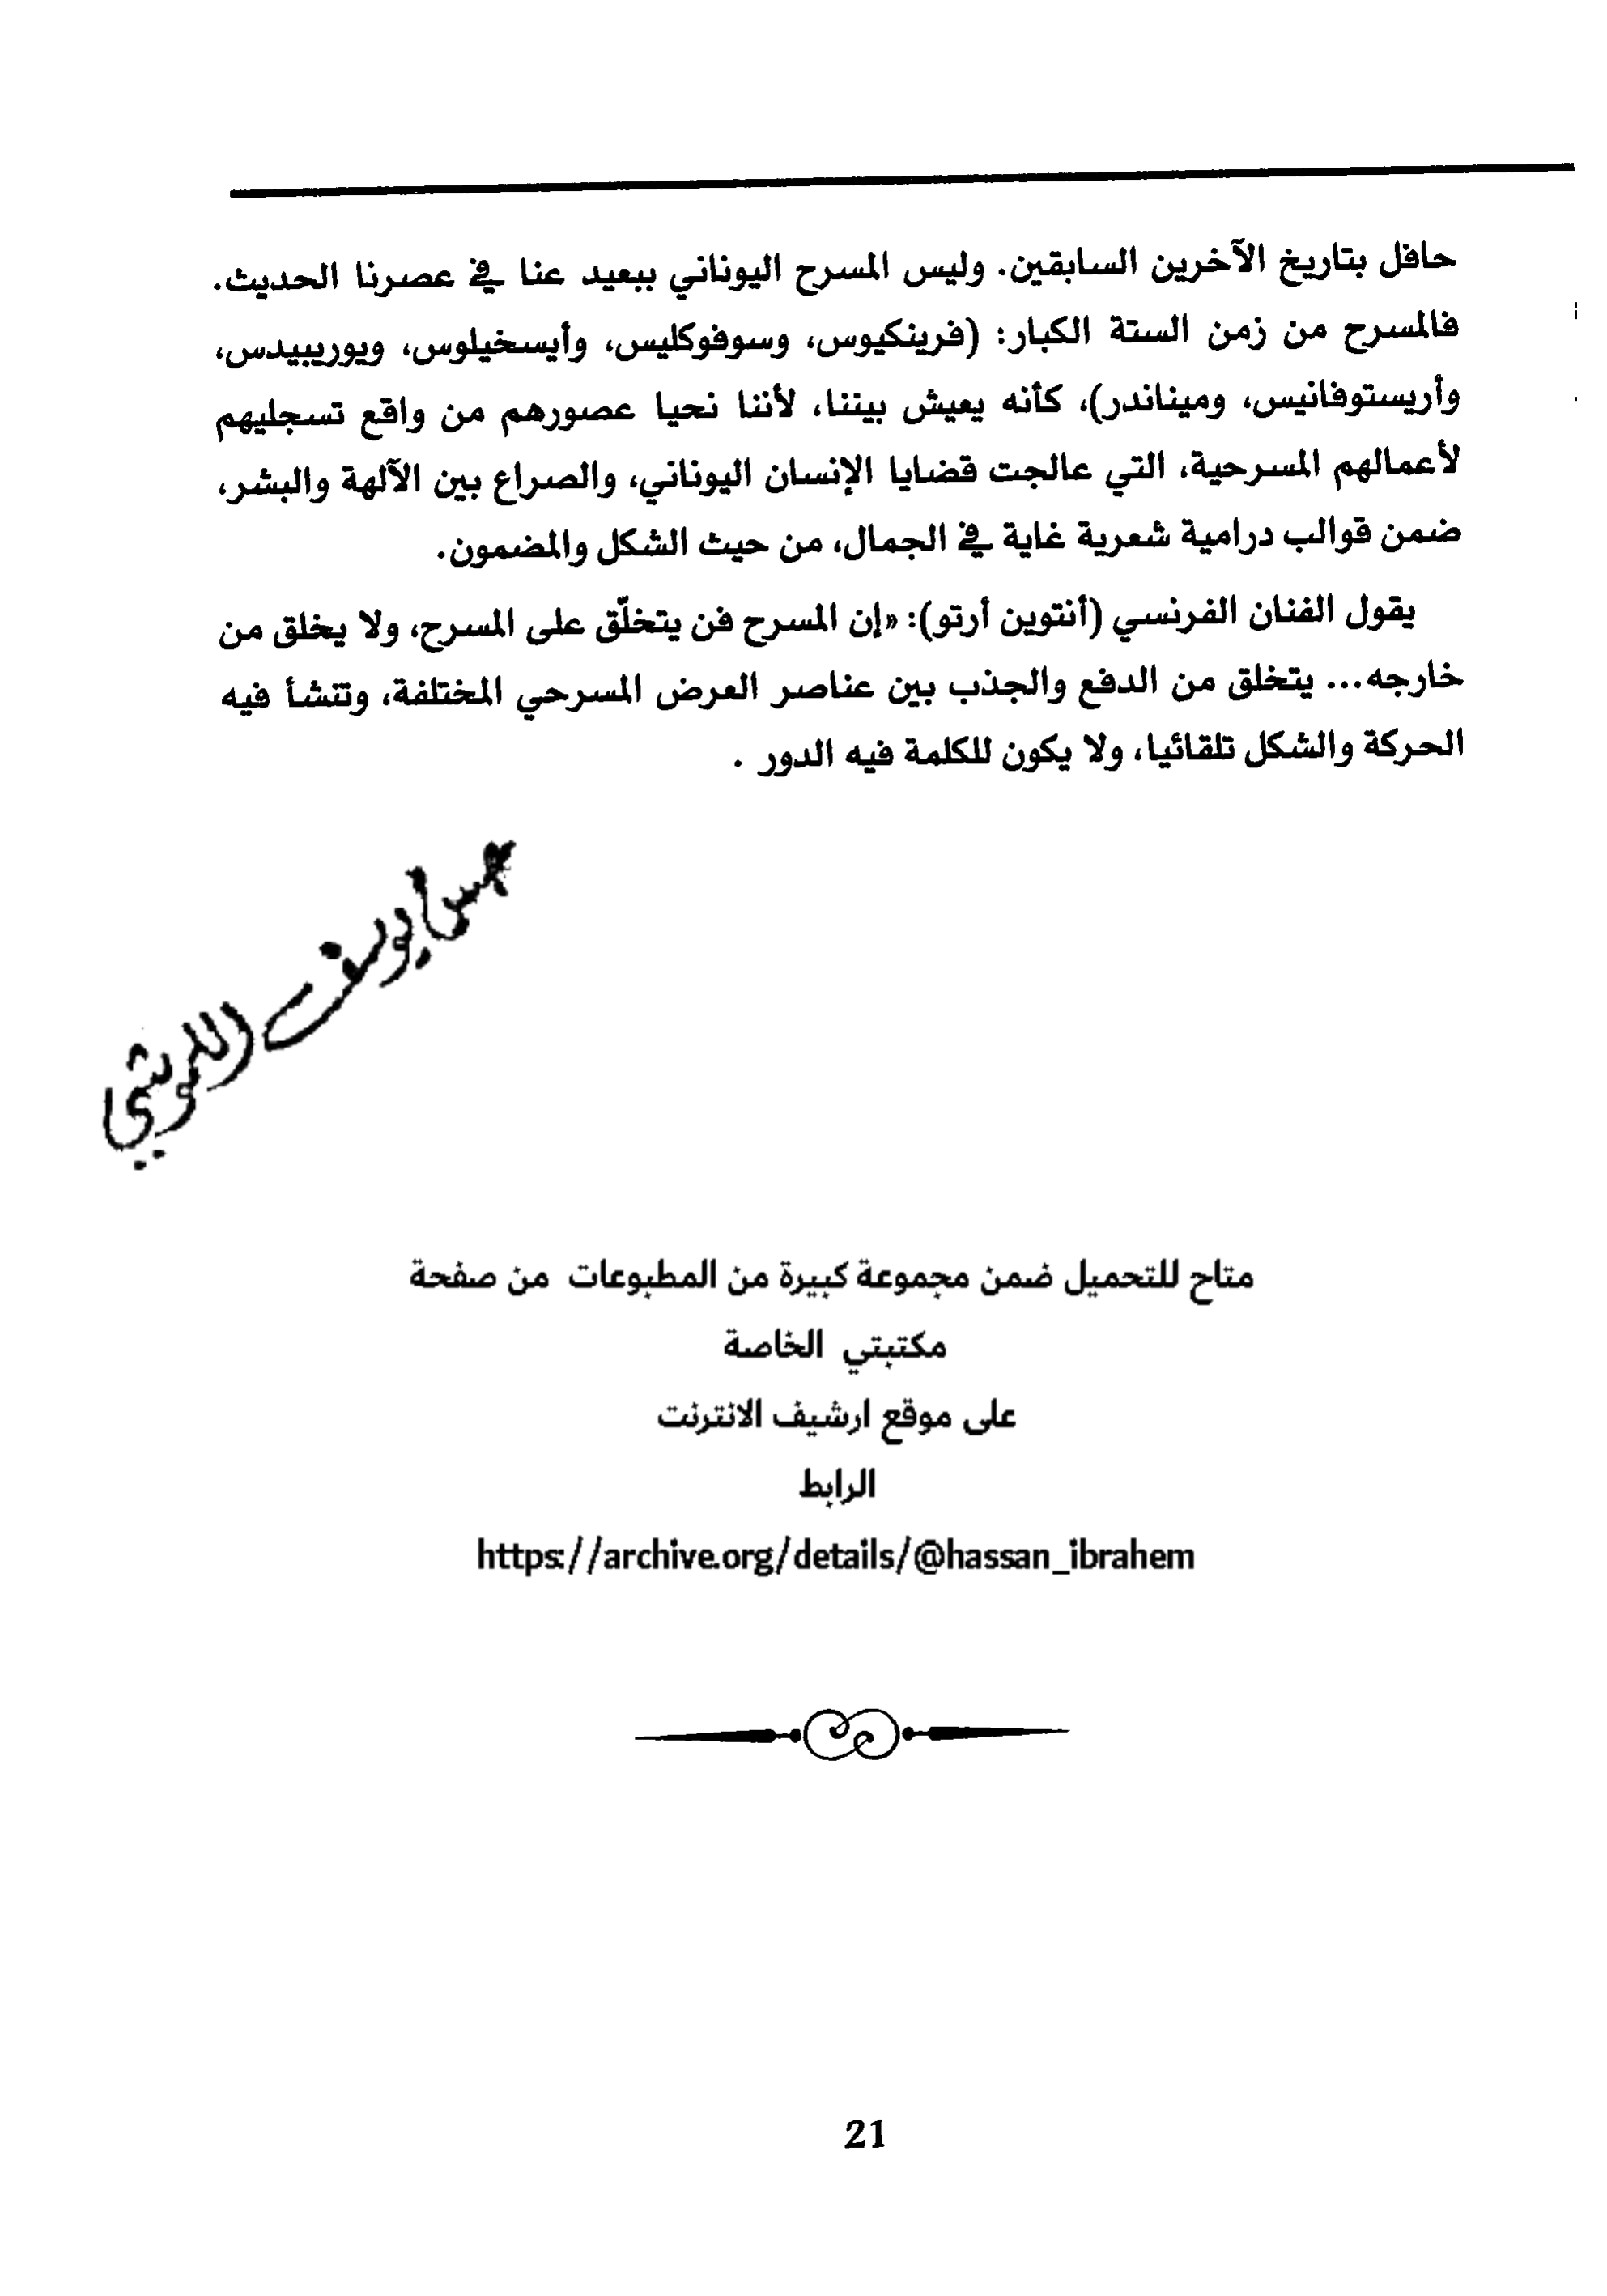 حافل بتاريخ الآخرين السابقين. وليس المسرح اليوناني ببعيد عنا في عصرنا الحديث.
فالمسرح من زمن الستة الكبار: (فرينكيوس، وسوفوكليس، وأيسخيلوس، ويوريبيدس،
وأريستوفانيس، وميناندر)، كأنه يعيش بيننا، لأننا نحيا عصورهم من واقع تسجليهم
لأعمالهم المسرحية، التي عالجت قضايا الإنسان اليوناني، والصراع بين الآلهة والبشر،
ضمن قوالب درامية شعرية غاية في الجمال، من حيث الشكل والمضمون.
يقول الفنان الفرنسي (أنتوين أرتو): «إن المسرح فن يتخلّق على المسرح، ولا يخلق من
خارجه... يتخلق من الدفع والجذب بين عناصر العرض المسرحي المختلفة، وتنشأ فيه
الحركة والشكل تلقائيا، ولا يكون للكلمة فيه الدور .
يوسف
متاح للتحميل ضمن مجموعة كبيرة من المطبوعات من صفحة
مكتبتي الخاصة
على موقع ارشيف الانترنت
الرابط
https://archive.org/details/@hassan_ibrahem
21